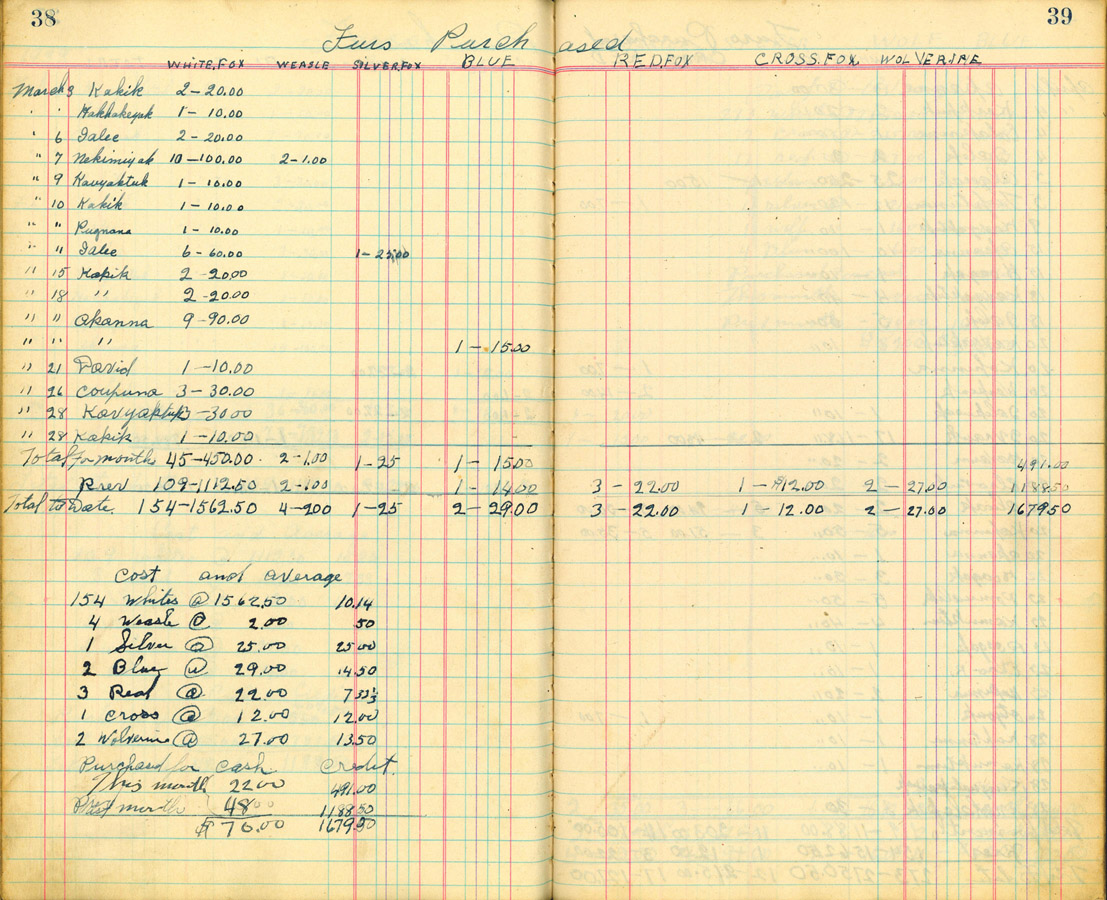 38
39
Furs Purchased
WHITE, FOX WEASLE SILVER, FOX BLUE RED, FOX CROSS. FOX WOLVERINE
March 3 Kakik 2-20.00
" " 1-10.00
" 6 Ialee 2-20.00
" 7 Nekimiyak 10-100.00 2-1.00
" 9 Kavyaktuk 1-10.00
" 10 Kakik 1-10.00
" " Pugnana 1-10.00
" " Ialee 6-60.00 1-25.00
" 15 Kakik 2-20.00
" 18 " 2-20.00
" " Akanna 9-90.00
" " " 1-15.00
" 21 David 1-10.00
" 26 Coupuna 3-30.00
" 28 Kavyaktuk 3-30.00
" 28 Kakik 1-10.00
Total for month 45-450.00 2-1.00 1-25 1-15.00 491.00
Prev 109-1112.50 2-1.00 1-14.00 3-22.00 1-12.00 2-27.00 1188.50
Total to Date 154-1562.50 4-200 1-25 2-29.00 3-22.00 1-12.00 2-27.00 1679.50
Cost and average
154 Whites @ 1562.50 10.14
4 Weasle @ 2.00 50
1 Silver @ 25.00 25.00
2 Blue @ 29.00 14.50
3 Red @ 22.00 7 33⅓
1 Cross @ 12.00 12.00
2 Wolverine @ 27.00 13.50
Purchased for Cash Credit.
This month 22.00 491.00
month 48.00 1188.50
$ 70.00 1679.50